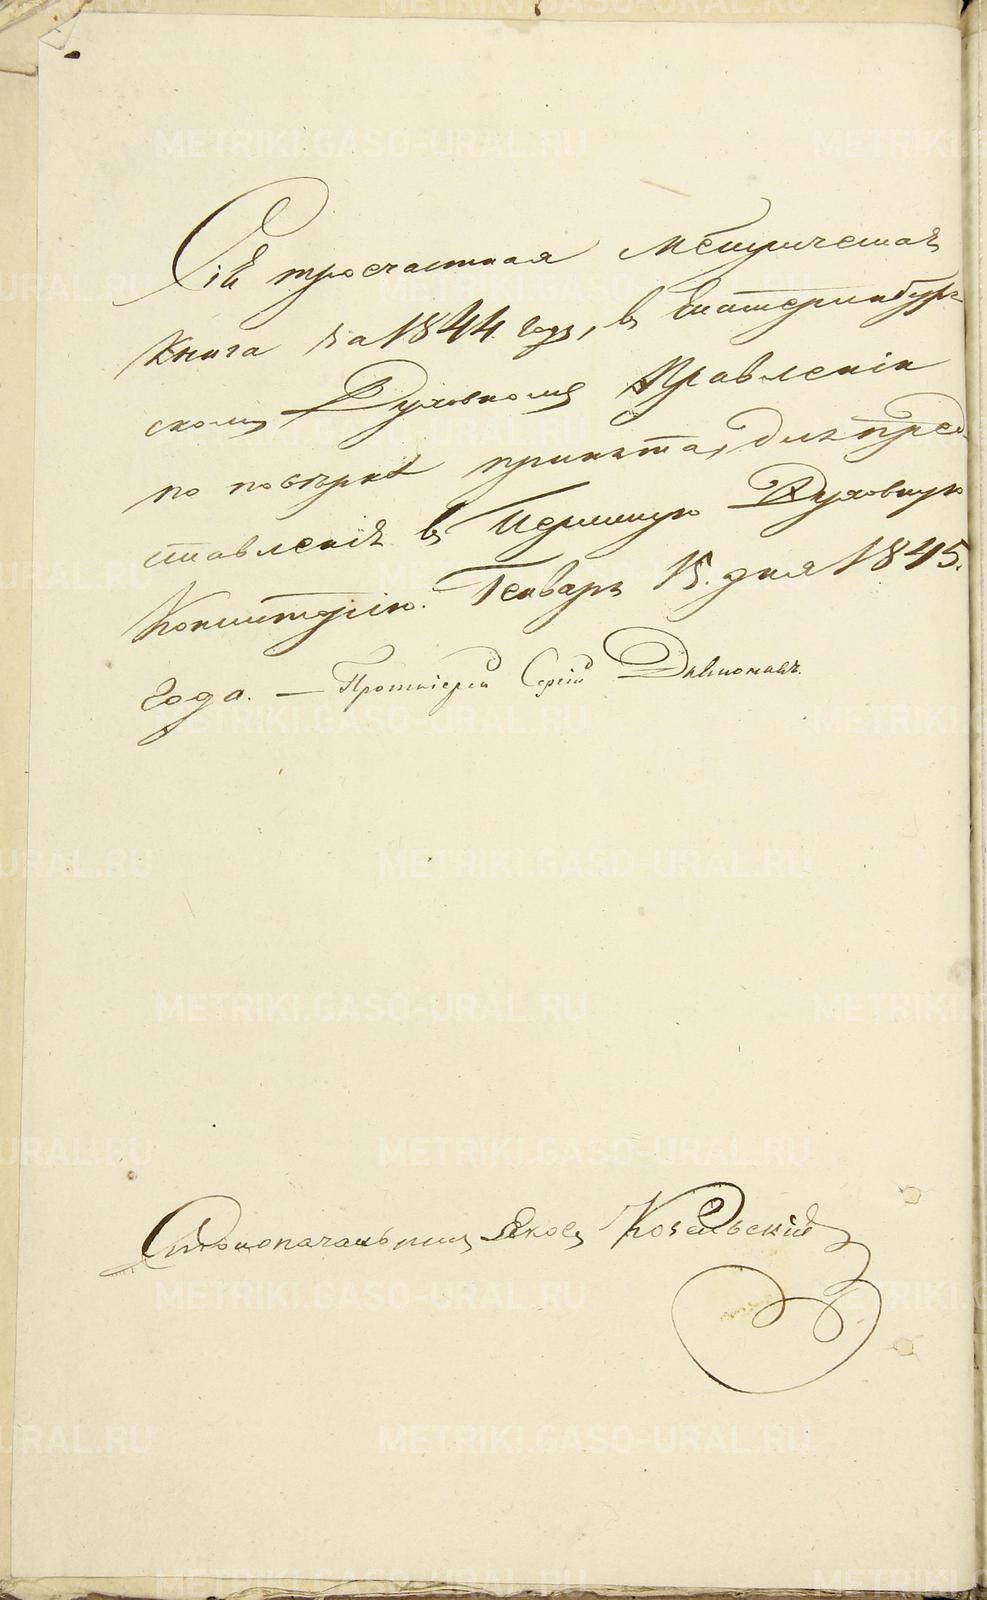 Сія троечастная Метрическая
Книга за 1844 годъ, въ Екатеринбург-
скомъ Духовномъ Правленіи
по повѣркѣ принята, для пред-
ставленія въ Пермскую Духовную
Консисторію. Генваря 15. дня 1845.
года. — Протоіерей Сергій
Столоначальникъ Яковъ
METRIKI.GASO-URAL.RU